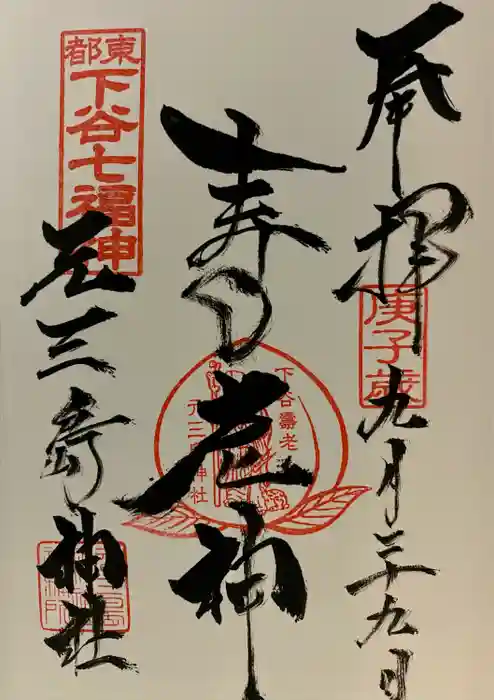 奉拝
庚子歳
九月二十九日
寿老神
下谷壽老
元三島神社
東都
下谷七福神
元三島神社